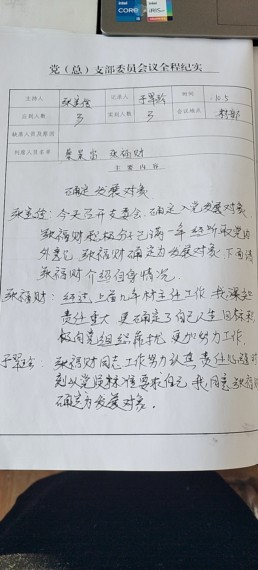 intel
CORE
i5
intel
党（总）支部委员会议全程纪实
主持人 张宝俭 记录人 于翠玲 时间 12.5
应到人数 3 实到人数 3 会议地点 村部
缺席人员及原因
列席人员名单 张福财
主要内容
确定发展对象
张宝俭：今天召开支委会，确定入党发展对象
张福财积极分子已满一年，经听取党内
外意见，张福财确定为发展对象，下面请
张福财介绍自身情况。
张福财：经过上届几年村主任工作，我深知
责任重大，更确定了自己人生目标积
极向党组织靠拢，更加努力工作。
于翠玲：张福财同志工作努力认真，责任心强，时
刻以党员标准要求自己，我同意张福财
确定为发展对象。